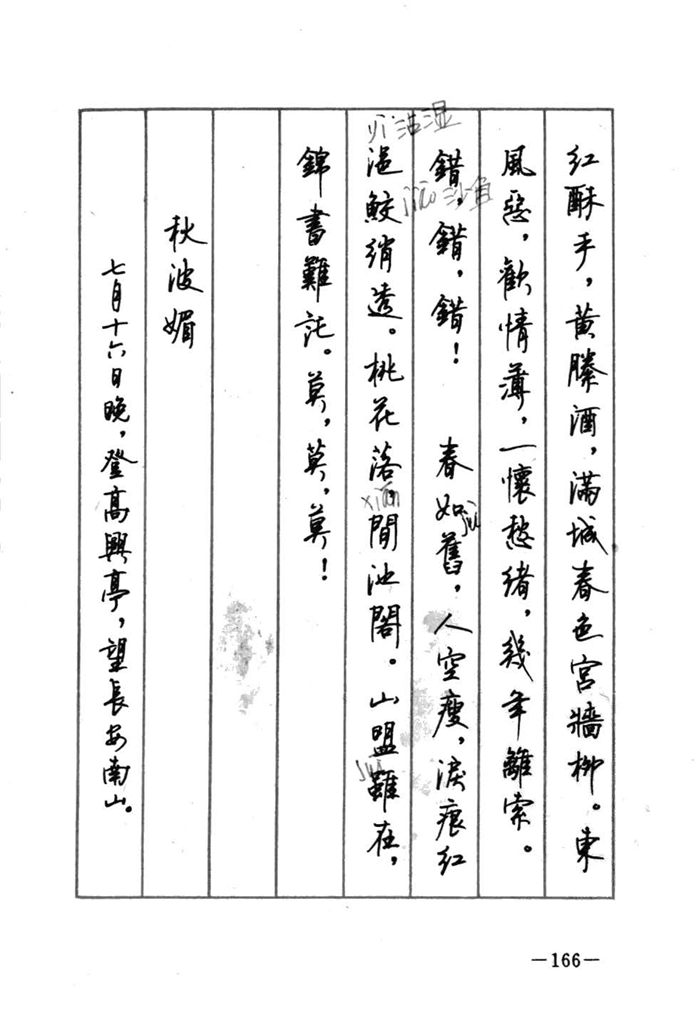 紅酥手，黄縢酒，滿城春色宫牆柳。東
風惡，歡情薄，一懷愁緒，幾年離索。
錯，錯，錯！ 春如舊，人空瘦，淚痕紅
浥鮫綃透。桃花落，閒池閣。山盟雖在，
錦書難託。莫，莫，莫！
秋波媚
七月十六日晚，登高興亭，望長安南山。
yì 沾湿
jiāo 沙鱼
xián
jiù
suī
—166—